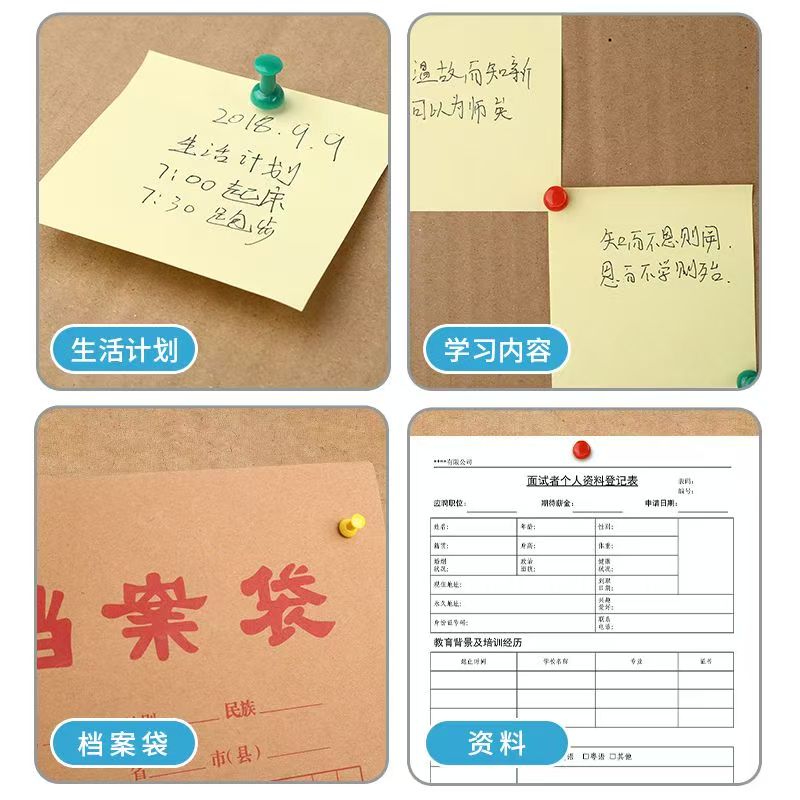 2018.9.9
生活计划
7:00起床
7:30跑步
生活计划
温故而知新
可以为师矣
知而不思则罔.
思而不学则殆.
学习内容
档案袋
民族
省 市(县)
档案袋
****有限公司
面试者个人资料登记表
表码:
编号:
应聘职位: 期待薪金: 申请日期:
姓名: 年龄: 性别:
籍贯: 身高: 体重:
婚姻状况: 政治面貌: 健康状况:
现住地址: 到职日期:
永久地址: 兴趣爱好:
身份证号码: 联系电话:
教育背景及培训经历
起止时间 学校名称 专业 证书
语 □粤语 □其他
资料